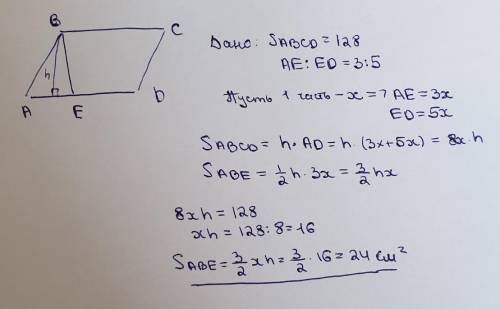 B
C
h
A
E
D
Дано: SABCD = 128
AE : ED = 3:5
Пусть 1 часть - x => AE = 3x
ED = 5x
SABCD = h · AD = h · (3x+5x) = 8x · h
SABE = 1/2 h · 3x = 3/2 hx
8xh = 128
xh = 128 : 8 = 16
SABE = 3/2 xh = 3/2 · 16 = 24 см²